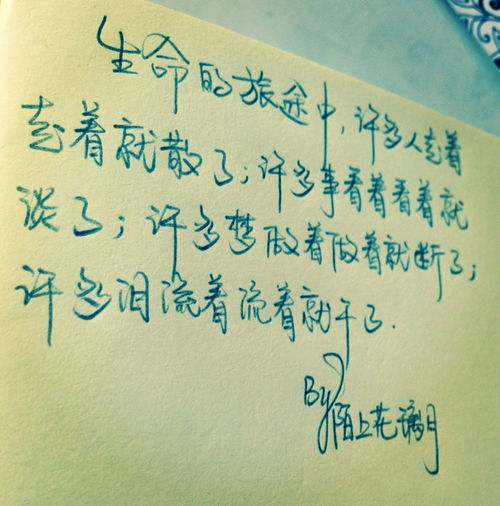 生命的旅途中，许多人走着
走着就散了；许多事看着看着就
淡了；许多梦做着做着就断了；
许多泪流着流着就干了.
By 陌上花璃月